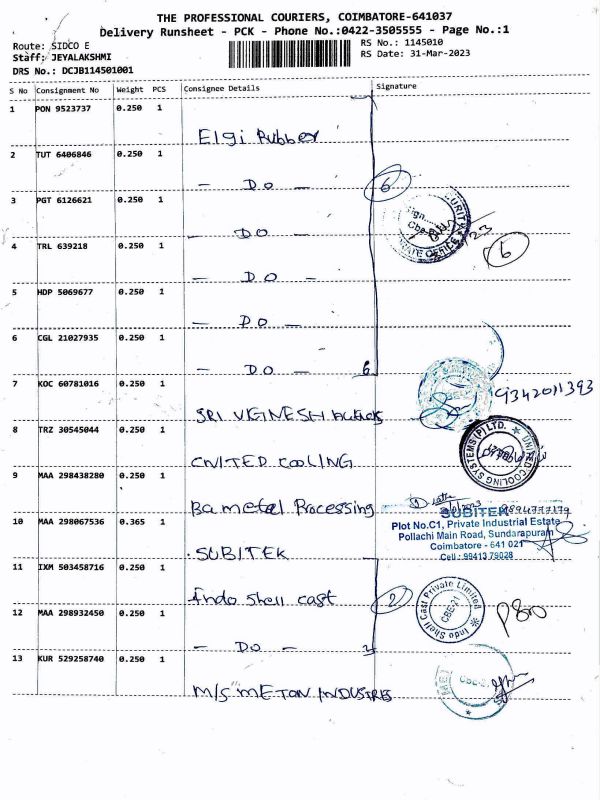 THE PROFESSIONAL COURIERS, COIMBATORE-641037
Delivery Runsheet - PCK - Phone No.:0422-3505555 - Page No.:1
Route: SIDCO E
RS No.: 1145010
Staff: JEYALAKSHMI
RS Date: 31-Mar-2023
DRS No.: DCJB114501001
S No Consignment No Weight PCS Consignee Details Signature
1 PON 9523737 0.250 1
Elgi Rubber
2 TUT 6406846 0.250 1
— DO — 6
3 PGT 6126621 0.250 1
— DO —
4 TRL 639218 0.250 1
6
— DO —
5 HDP 5069677 0.250 1
— DO —
6 CGL 21027935 0.250 1
— DO — 6
7 KOC 60781016 0.250 1
9342011393
SRI VIGINESH
8 TRZ 30545044 0.250 1
UNITED COOLING SYSTEMS (P) LTD.
CNITED COOLING
9 MAA 298438280 0.250 1
Ba metal Processing
SUBITEK
10 MAA 298067536 0.365 1
Plot No.C1, Private Industrial Estate
Pollachi Main Road, Sundarapuram
Coimbatore - 641 021
Cell : 99413 79028
. SUBITEK
11 IXM 503458716 0.250 1
Indo Shell cast 2
Indo Shell Cast Private Limited
CBE-11
12 MAA 298932450 0.250 1
— DO — 2
13 KUR 529258740 0.250 1
M/S METON INDUSTRIES